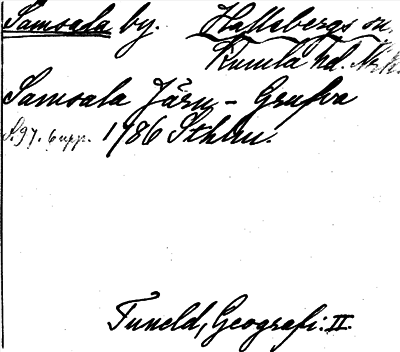 Samsala by. Hallsbergs sn.
Kumla hd. Nrk.
Samsala Järn-Grufva
S. 97. 6 upp. 1786 Sthlm.
Tuneld, Geografi: II.